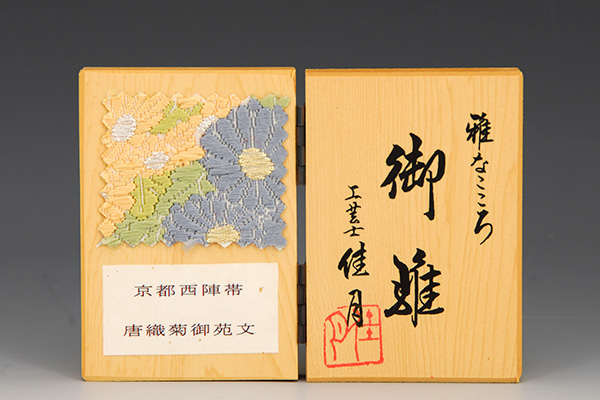 雅なこころ
御雛
工芸士 佳月
佳月
京都西陣帯
唐織菊御苑文